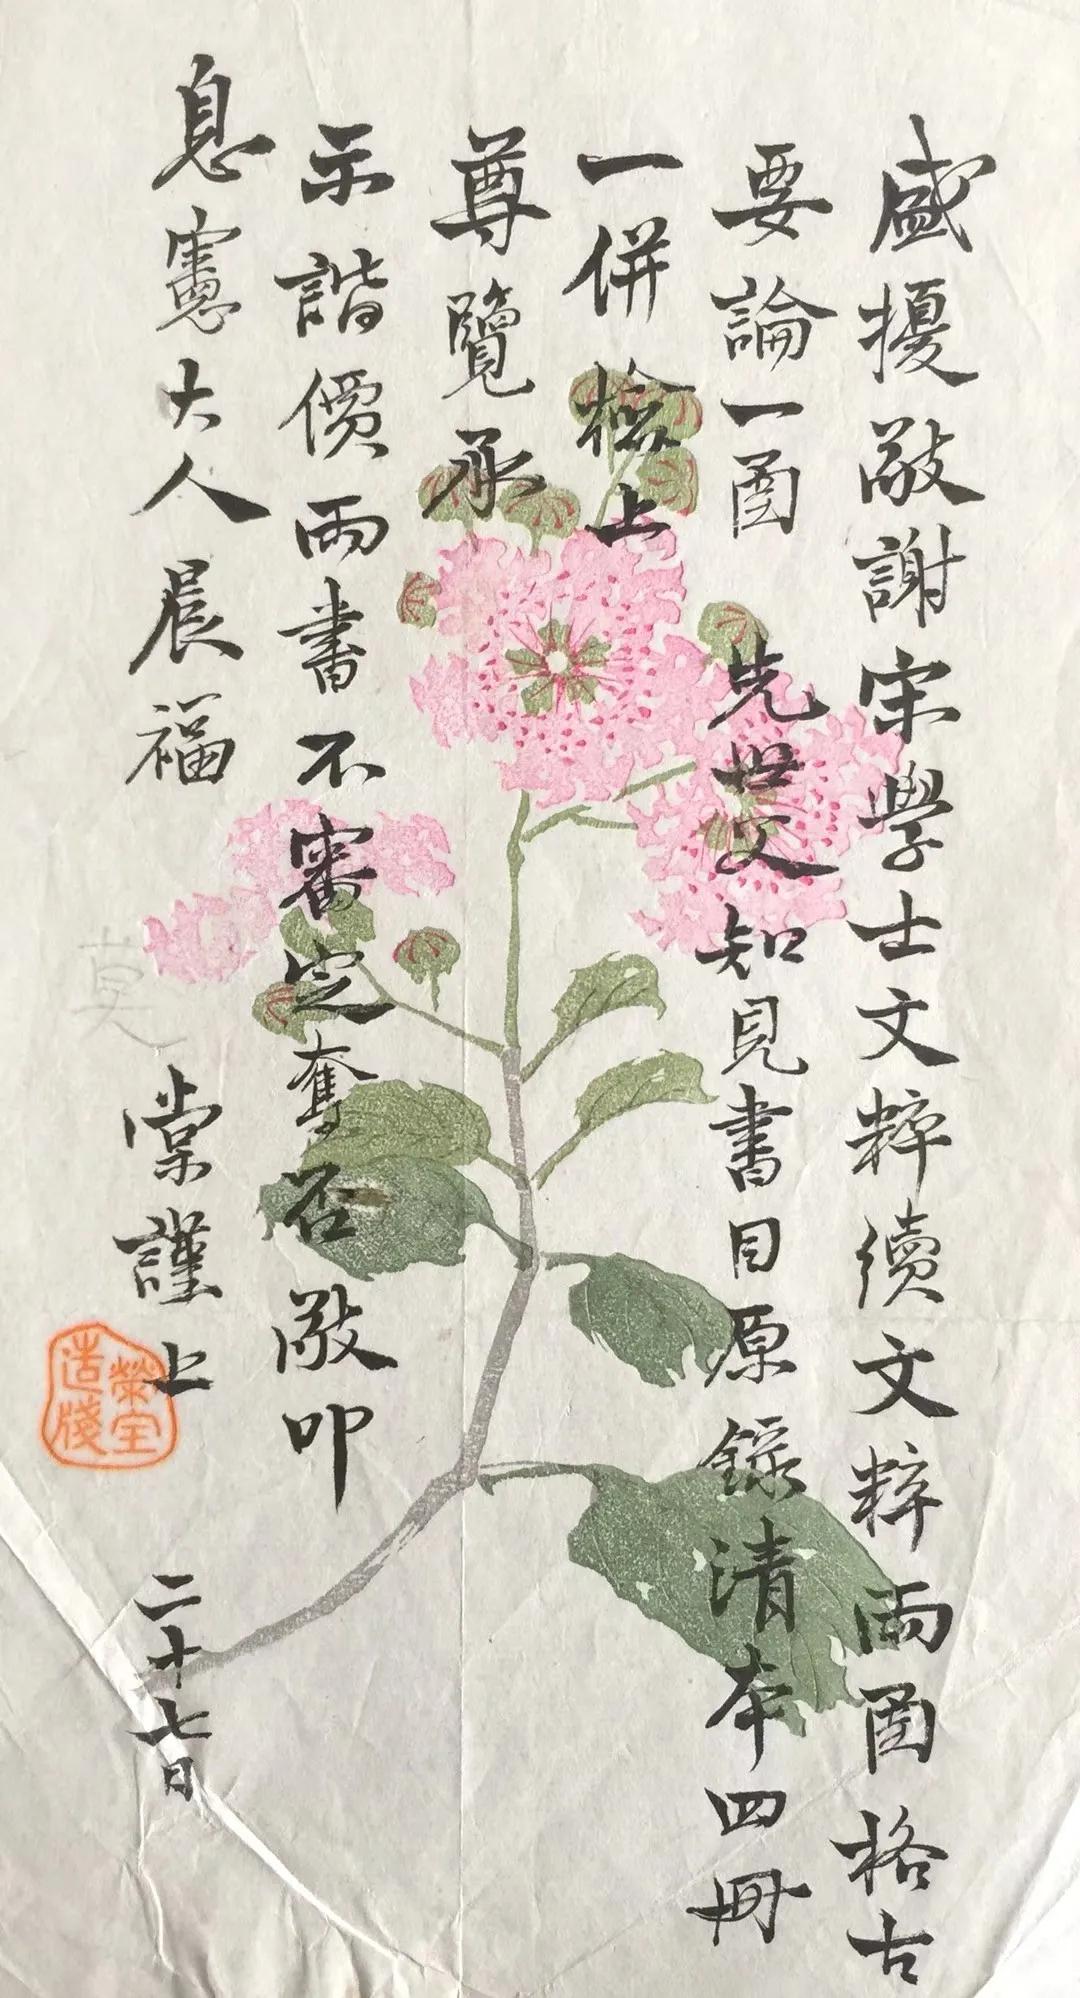 盛擾敬謝宋學士文粹續文粹兩函格古
要論一函先世父知見書目原錄清本四冊
一併檢上
尊覽承
示諧價兩書不審定奪否敬叩
息憲大人晨福
莫
棠謹上
二十七日
榮宝
造牋